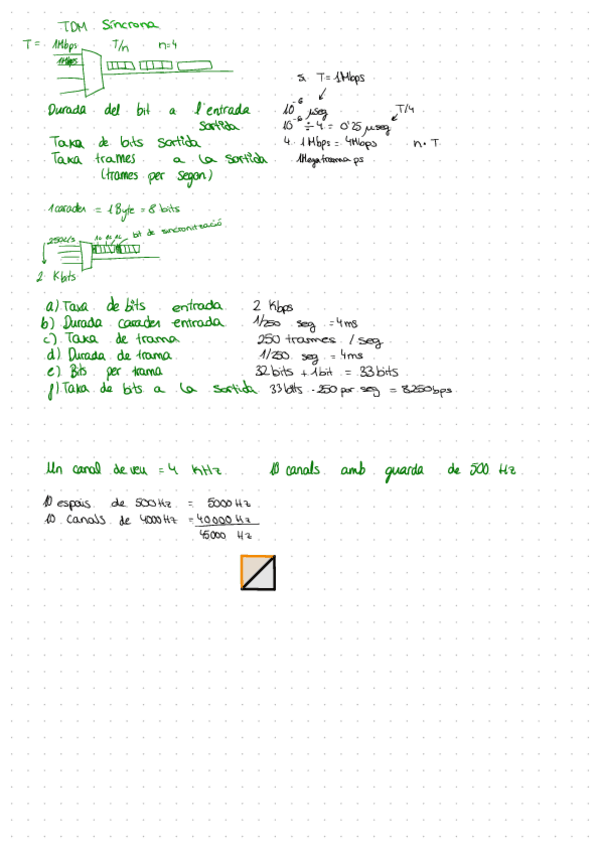 TDM Síncrona
T = 1Mbps T/n n=4
1Mbps
si T=1Mbps
Durada del bit a l'entrada 10^-6 μseg
sortida 10^-6 ÷ 4 = 0'25 μseg T/4
Taxa de bits sortida 4 · 1Mbps = 4Mbps n · T
Taxa trames a la sortida 1Megatrama ps
(trames per segon)
1 caracter = 1 Byte = 8 bits
250 c/s bit de sincronització
2 Kbits
a) Taxa de bits entrada 2 Kbps
b) Durada caracter entrada 1/250 seg = 4ms
c) Taxa de trama 250 trames / seg
d) Durada de trama 1/250 seg = 4ms
e) Bits per trama 32 bits + 1 bit = 33 bits
f) Taxa de bits a la sortida 33 bits · 250 per seg = 8250bps
Un canal de veu = 4 KHz 10 canals amb guarda de 500 Hz
10 espais de 500Hz = 5000Hz
10 canals de 4000Hz = 40000Hz
45000 Hz